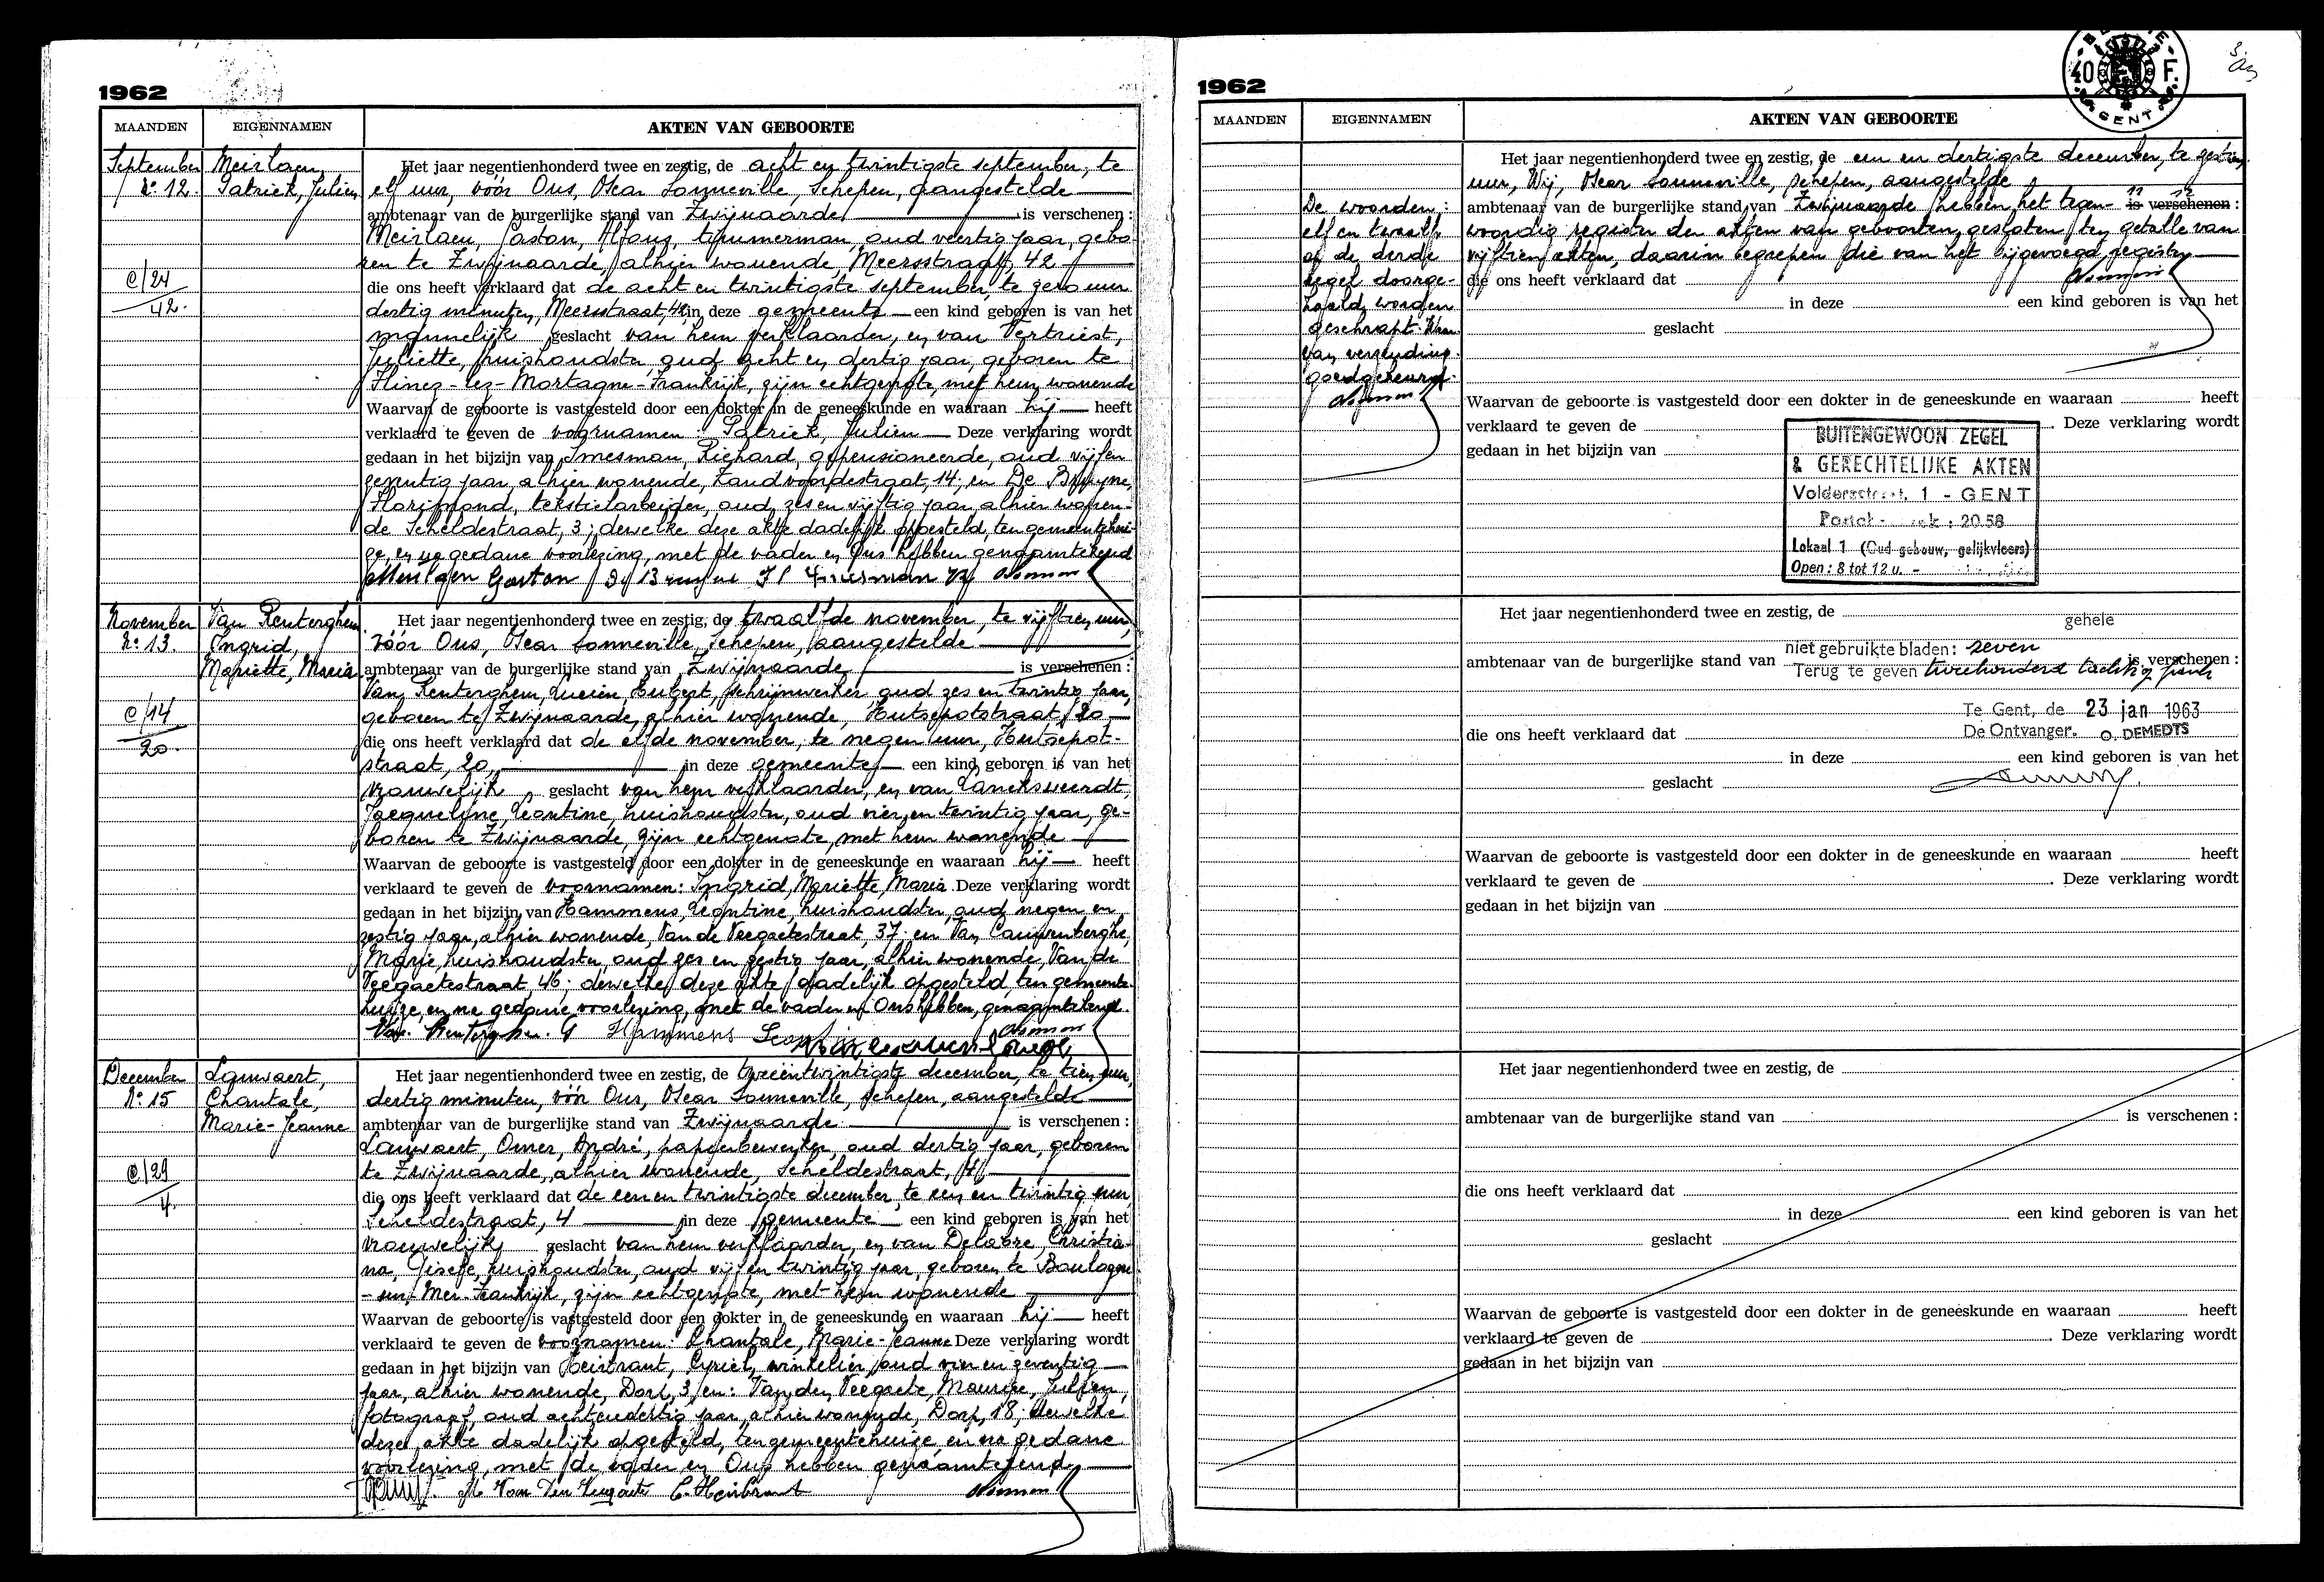 1962
MAANDEN EIGENNAMEN AKTEN VAN GEBOORTE
September
N° 12.
Meirlaen,
Patrick, Julien
C/24
42.
Het jaar negentienhonderd twee en zestig, de acht en twintigste september, te
elf uur, vóór Ons, Oscar Sonneville, Schepen, aangestelde
ambtenaar van de burgerlijke stand van Zwijnaarde is verschenen :
Meirlaen, Gaston, Alfons, timmerman, oud veertig jaar, gebo-
ren te Zwijnaarde, alhier wonende, Meersstraat, 42
die ons heeft verklaard dat de acht en twintigste september, te zero uur
dertig minuten, Meersstraat, 42, in deze gemeente een kind geboren is van het
mannelijk geslacht van hem verklaarder, en van Vertriest,
Juliette, huishoudster, oud acht en dertig jaar, geboren te
Flines-lez-Mortagne-Frankrijk, zijn echtgenote, met hem wonende
Waarvan de geboorte is vastgesteld door een dokter in de geneeskunde en waaraan hij heeft
verklaard te geven de voornamen : Patrick, Julien Deze verklaring wordt
gedaan in het bijzijn van Imesman, Richard, gepensioneerde, oud vijfen
zeventig jaar, alhier wonende, Zandvoordestraat, 14; en De Bruyne,
Florimond, tekstielarbeider, oud zes en vijftig jaar, alhier wonen-
de Scheldestraat, 3; dewelke deze akte dadelijk opgesteld, ten gemeentehui-
ze, en na gedane voorlezing, met de vader en Ons hebben genaamtekend
Meirlaen Gaston De Bruyne Fl Imesman R
November
N° 13.
Van Renterghem
Ingrid,
Mariette, Maria
C/14
20.
Het jaar negentienhonderd twee en zestig, de twaalfde november, te vijftien uur,
vóór Ons, Oscar Sonneville, Schepen, aangestelde
ambtenaar van de burgerlijke stand van Zwijnaarde is verschenen :
Van Renterghem, Lucien, Hubert, schrijnwerker, oud zes en twintig jaar,
geboren te Zwijnaarde, alhier wonende, Hutsepotstraat, 20
die ons heeft verklaard dat de elfde november, te negen uur, Hutsepot-
straat, 20, in deze gemeente een kind geboren is van het
vrouwelijk geslacht van hem verklaarder, en van Lancksweerdt,
Jacqueline, Leontine, huishoudster, oud vier en twintig jaar, ge-
boren te Zwijnaarde, zijn echtgenote, met hem wonende
Waarvan de geboorte is vastgesteld door een dokter in de geneeskunde en waaraan hij heeft
verklaard te geven de voornamen : Ingrid, Mariette, Maria. Deze verklaring wordt
gedaan in het bijzijn van Hammens, Leontine, huishoudster, oud negen en
zestig jaar, alhier wonende, Van de Veegaetestraat, 37; en Van Cauwenberghe,
Marie, huishoudster, oud zes en zestig jaar, alhier wonende, Van de
Veegaetestraat, 46; dewelke deze akte dadelijk opgesteld, ten gemeente-
huize, en na gedane voorlezing, met de vader en Ons hebben genaamtekend.
Van Renterghem. Hammens
December
N° 15
Lauwaert,
Chantale,
Marie-Jeanne
C/29
4.
Het jaar negentienhonderd twee en zestig, de tweeëntwintigste december, te tien uur,
dertig minuten, vóór Ons, Oscar Sonneville, Schepen, aangestelde
ambtenaar van de burgerlijke stand van Zwijnaarde is verschenen :
Lauwaert, Omer, André, papierbewerker, oud dertig jaar, geboren
te Zwijnaarde, alhier wonende, Scheldestraat, 4
die ons heeft verklaard dat de een en twintigste december, te een en twintig uur,
Scheldestraat, 4 in deze gemeente een kind geboren is van het
vrouwelijk geslacht van hem verklaarder, en van Delabre, Christia-
na, Gisele, huishoudster, oud vijf en twintig jaar, geboren te Boulogne
-sur-Mer-Frankrijk, zijn echtgenote, met hem wonende
Waarvan de geboorte is vastgesteld door een dokter in de geneeskunde en waaraan hij heeft
verklaard te geven de voornamen : Chantale, Marie-Jeanne Deze verklaring wordt
gedaan in het bijzijn van Heirbrant, Cyriel, winkelier, oud vier en zeventig
jaar, alhier wonende, Dorp, 3, en : Van den Veegaete, Maurice, Julien,
fotograaf, oud achtendertig jaar, alhier wonende, Dorp, 18; dewelke
deze akte dadelijk opgesteld, ten gemeentehuize, en na gedane
voorlezing, met de vader en Ons hebben genaamtekend
M Van Den Veegaete C. Heirbrant
1962
40 F.
GENT
MAANDEN EIGENNAMEN AKTEN VAN GEBOORTE
De woorden :
elf en twaalf
op de derde
regel doorge-
haald worden
geschrapt.
van verzending
goedgekeurd.
Het jaar negentienhonderd twee en zestig, de een en dertigste december, te zestien
uur, Wij, Oscar Sonneville, schepen, aangestelde
11 12
ambtenaar van de burgerlijke stand van Zwijnaarde hebben het tegen- is verschenen :
woordig register der akten van geboorten, gesloten ten getalle van
vijftien akten, daarin begrepen die van het bijgevoegd register
die ons heeft verklaard dat
in deze een kind geboren is van het
geslacht
Waarvan de geboorte is vastgesteld door een dokter in de geneeskunde en waaraan heeft
verklaard te geven de . Deze verklaring wordt
gedaan in het bijzijn van
BUITENGEWOON ZEGEL
& GERECHTELIJKE AKTEN
Voldersstraat, 1 - GENT
2058
Lokaal 1 (Oud gebouw, gelijkvloers)
Open : 8 tot 12 u. -
Het jaar negentienhonderd twee en zestig, de
gehele
niet gebruikte bladen : zeven
ambtenaar van de burgerlijke stand van is verschenen :
Terug te geven tweehonderd tachtig frank
Te Gent, de 23 jan 1963
die ons heeft verklaard dat De Ontvanger. O. DEMEDTS
in deze een kind geboren is van het
geslacht
Waarvan de geboorte is vastgesteld door een dokter in de geneeskunde en waaraan heeft
verklaard te geven de . Deze verklaring wordt
gedaan in het bijzijn van
Het jaar negentienhonderd twee en zestig, de
ambtenaar van de burgerlijke stand van is verschenen :
die ons heeft verklaard dat
in deze een kind geboren is van het
geslacht
Waarvan de geboorte is vastgesteld door een dokter in de geneeskunde en waaraan heeft
verklaard te geven de . Deze verklaring wordt
gedaan in het bijzijn van